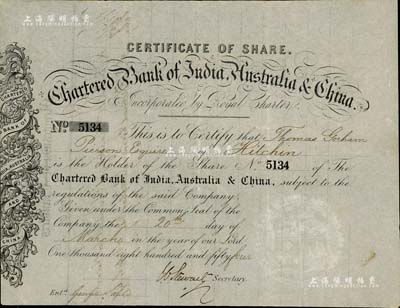 上海阳明拍卖
CERTIFICATE OF SHARE.
Chartered Bank of India, Australia & China.
Incorporated by Royal Charter.
No. 5134 This is to Certify that Thomas
Pierson Esquire Hitchin
is the Holder of the Share No. 5134 of The
Chartered Bank of India, Australia & China, subject to the
regulations of the said Company.
Given under the Common Seal of the
Company, the 20th day of
March in the year of our Lord
One thousand eight hundred and fifty
Secretary.
Entd.
CHARTERED
BANK OF
INDIA
AUSTRALIA
AND
CHINA